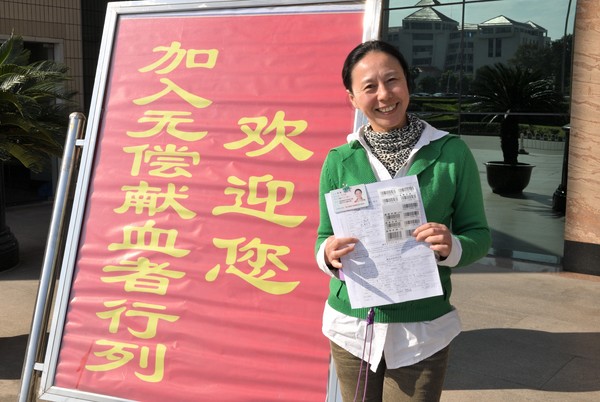 欢迎您
加入无偿献血者行列